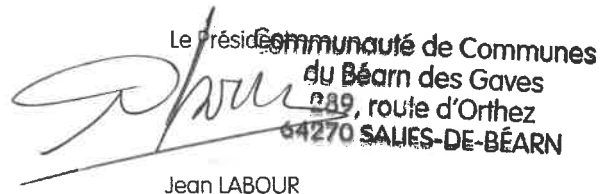 Le Président
Communauté de Communes
du Béarn des Gaves
289, route d'Orthez
64270 SALIES-DE-BÉARN
Jean LABOUR